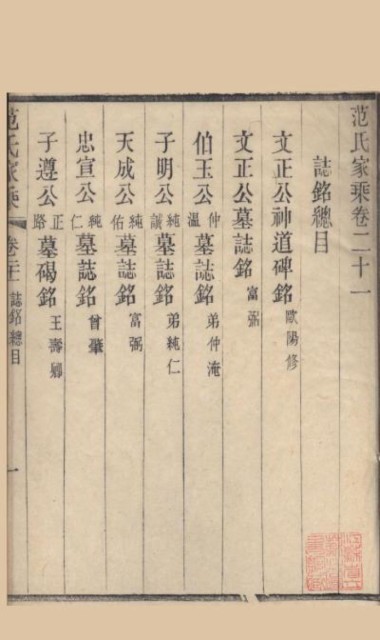 范氏家乘卷二十一
誌銘總目
文正公神道碑銘 歐陽修
文正公墓誌銘 富弼
伯玉公仲溫墓誌銘 弟仲淹
子明公純誠墓誌銘 弟純仁
天成公純佑墓誌銘 富弼
忠宣公純仁墓誌銘 曾肇
子遵公正路墓碣銘 王壽卿
范氏家乘 卷二十一 誌銘總目 一